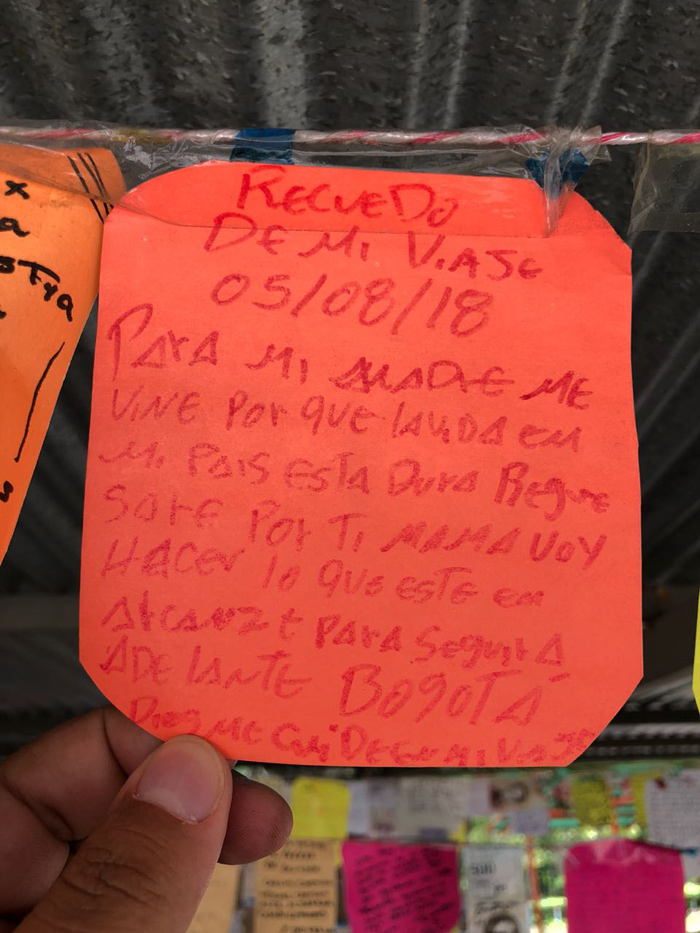 RECUEDO
DE MI VIAJE
05/08/18
PARA MI MADRE ME
VINE POR QUE LA VIDA EM
MI PAIS ESTA DURA Regre
SARE POR TI MAMA VOY
HACER lo QUE ESTE EM
ALCANZE PARA SEGUIR A
ADELANTE BOGOTÁ
DIOS ME CUIDE EN MI VIAJE